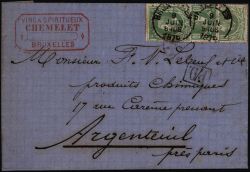 VINS & SPIRITUEUX
CHEMELET
BRUXELLES
JUIN
1876
JUIN
1876
PD
Monsieur F. V. Lebeuf & Cie
produits chimiques
17 rue Carême prenant
Argenteuil
près paris